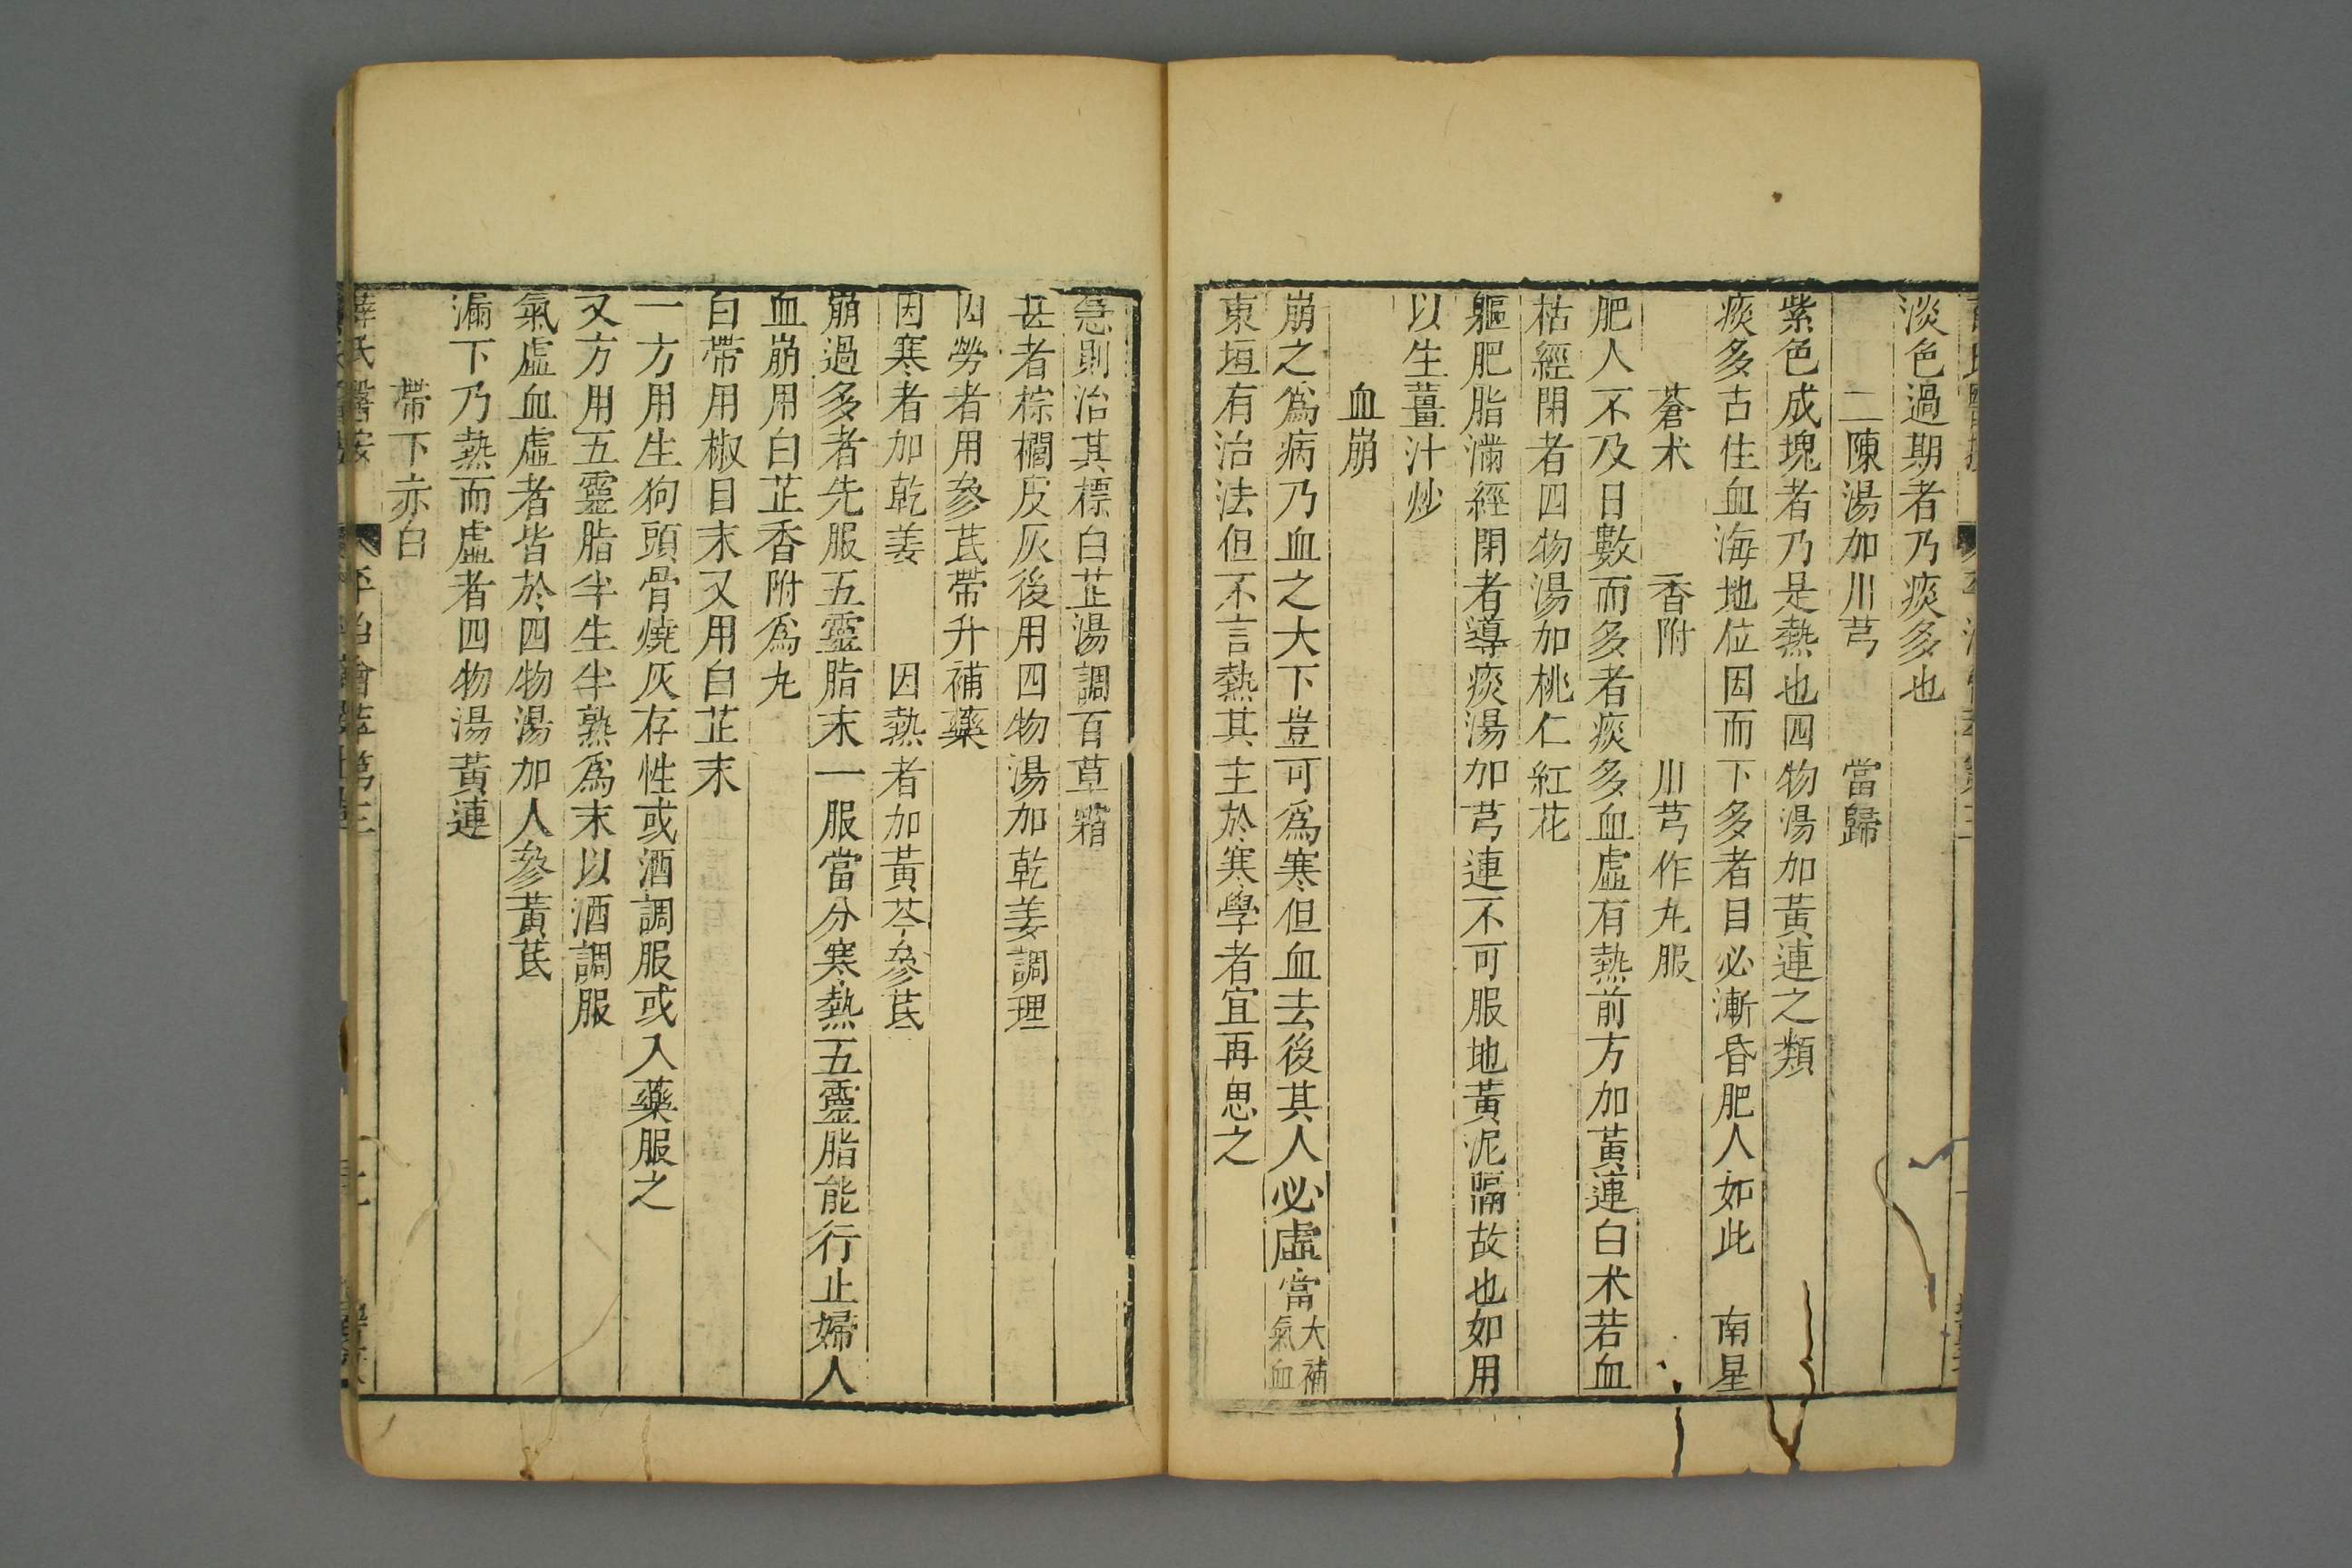 淡色過期者乃痰多也
二陳湯加川芎　當歸
紫色成塊者乃是熱也四物湯加黃連之類
痰多古住血海地位因而下多者目必漸昏肥人如此　南星
蒼术　香附　川芎作丸服
肥人不及日數而多者痰多血虛有熱前方加黃連白术若血
枯經閉者四物湯加桃仁紅花
軀肥脂滿經閉者導痰湯加芎連不可服地黃泥膈故也如用
以生薑汁炒
血崩
崩之爲病乃血之大下豈可爲寒但血去後其人必虛當大補氣血
東垣有治法但不言熱其主於寒學者宜再思之
急則治其標白芷湯調百草霜
甚者棕櫚皮灰後用四物湯加乾姜調理
因勞者用參芪帶升補藥
因寒者加乾姜　因熱者加黃芩參芪
崩過多者先服五靈脂末一服當分寒熱五靈脂能行止婦人
血崩用白芷香附爲丸
白帶用椒目末又用白芷末
一方用生狗頭骨燒灰存性或酒調服或入藥服之
又方用五靈脂半生半熟爲末以酒調服
氣虛血虛者皆於四物湯加人參黃芪
漏下乃熱而虛者四物湯黃連
帶下赤白
薛氏醫按
平治會萃第三